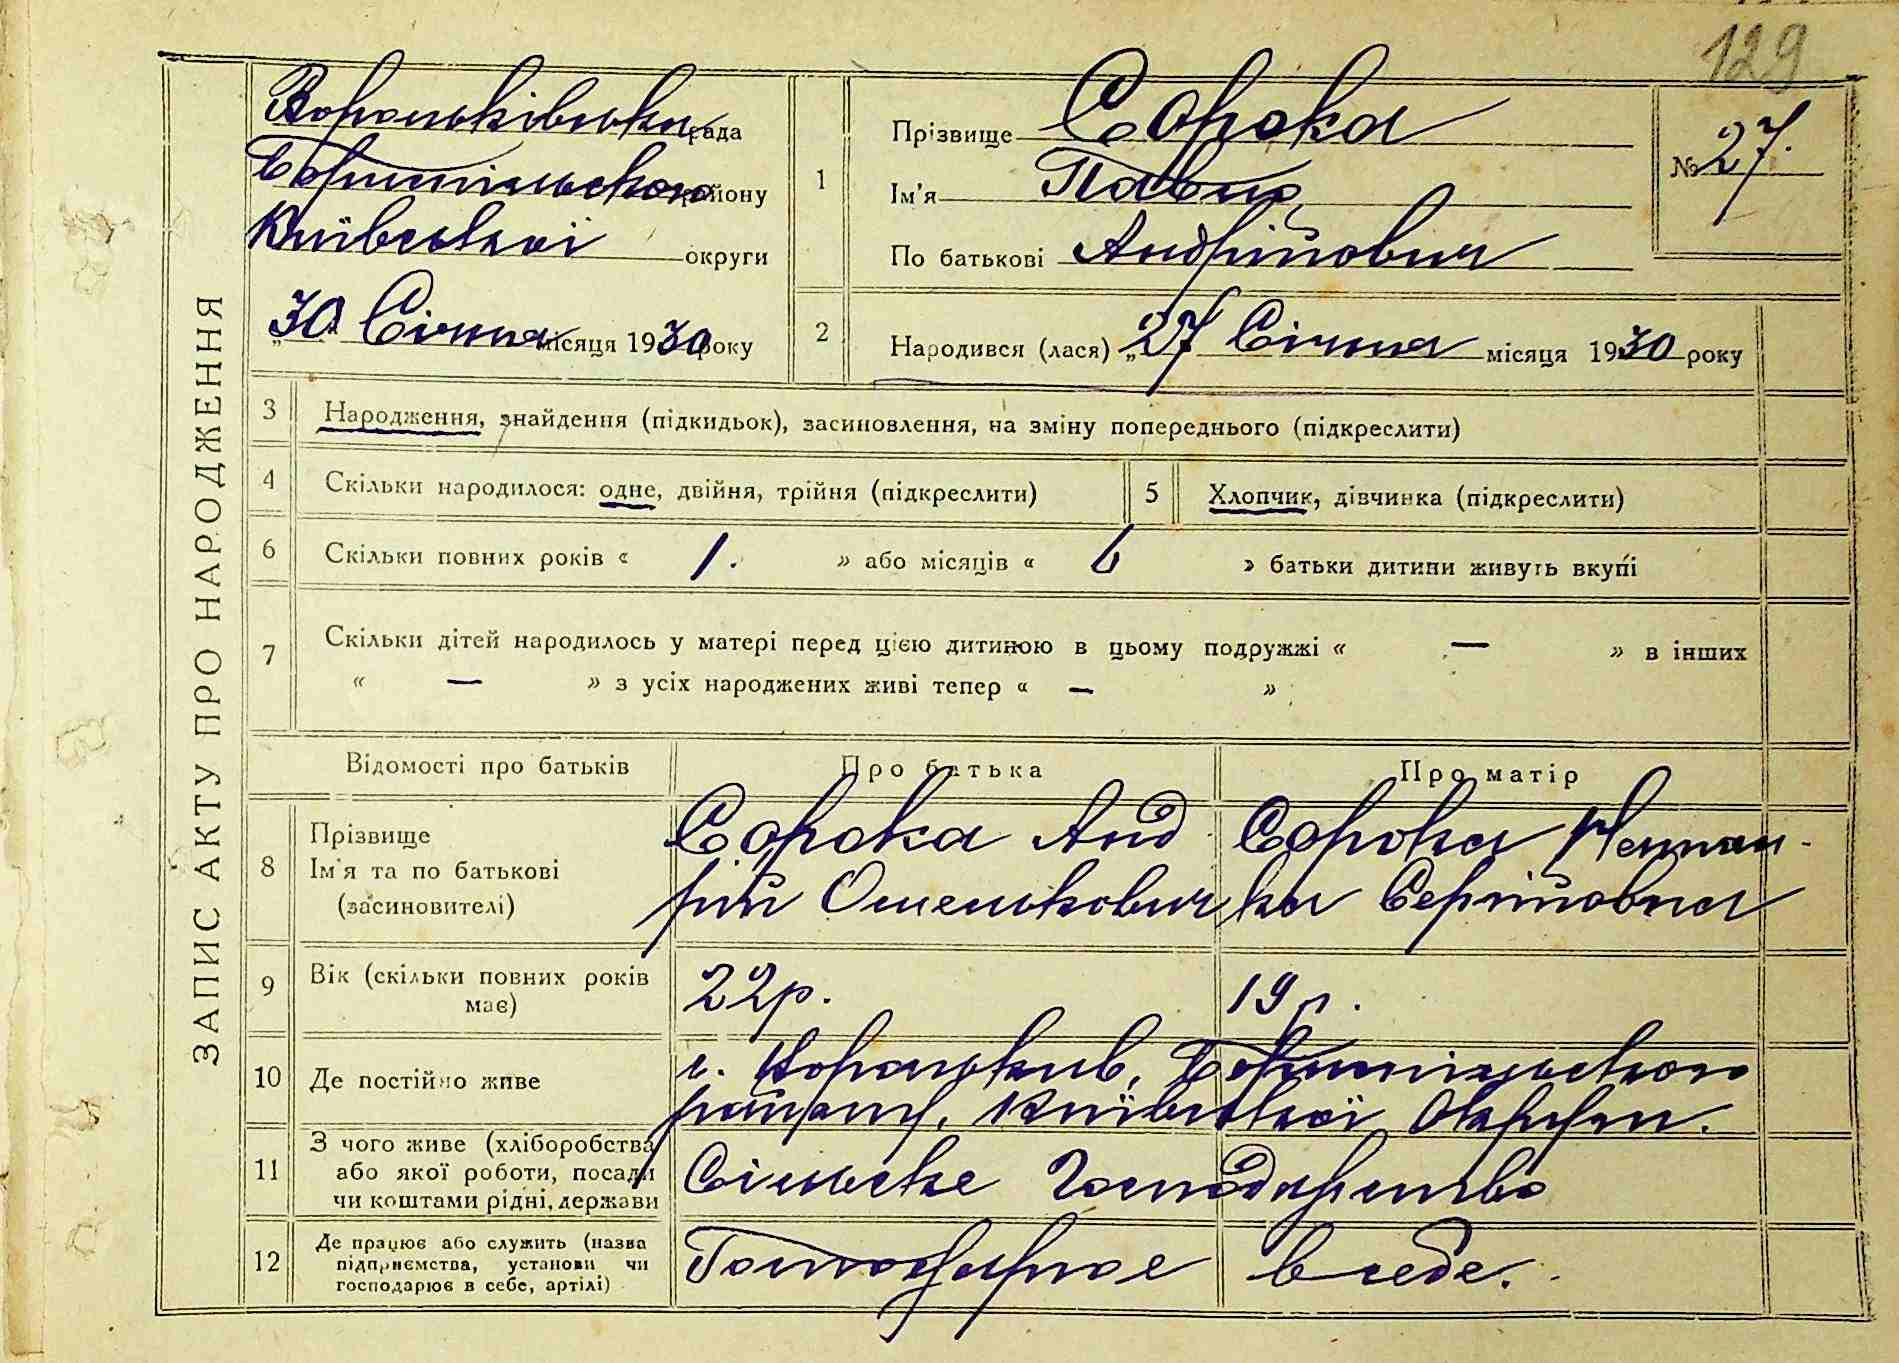 129
ЗАПИС АКТУ ПРО НАРОДЖЕННЯ
Вороньківська рада
Бориспільського району
Київської округи
„30“ Січня місяця 1930 року
1
Прізвище Сорока
Ім'я Павло
По батькові Андрійович
№ 27.
2
Народився (лася) „27 Січня місяця 1930 року
3 Народження, знайдення (підкидьок), засиновлення, на зміну попереднього (підкреслити)
4 Скільки народилося: одне, двійня, трійня (підкреслити)
5 Хлопчик, дівчинка (підкреслити)
6 Скільки повних років « 1. » або місяців « 6 » батьки дитини живуть вкупі
7 Скільки дітей народилось у матері перед цією дитиною в цьому подружжі « — » в інших
« — » з усіх народжених живі тепер « — »
Відомості про батьків Про батька Про матір
8
Прізвище
Ім'я та по батькові
(засиновителі)
Сорока Анд
рій Омелькович
Сорока
Сергійовна
9
Вік (скільки повних років
має)
22р. 19 р.
10 Де постійно живе
с. Вороньків, Бориспільського
району, Київської Округи.
11
З чого живе (хліборобства
або якої роботи, посади
чи коштами рідні, держави
Сільське Господарство
12
Де працює або служить (назва
підприємства, установи чи
господарює в себе, артілі)
Господарює в себе.